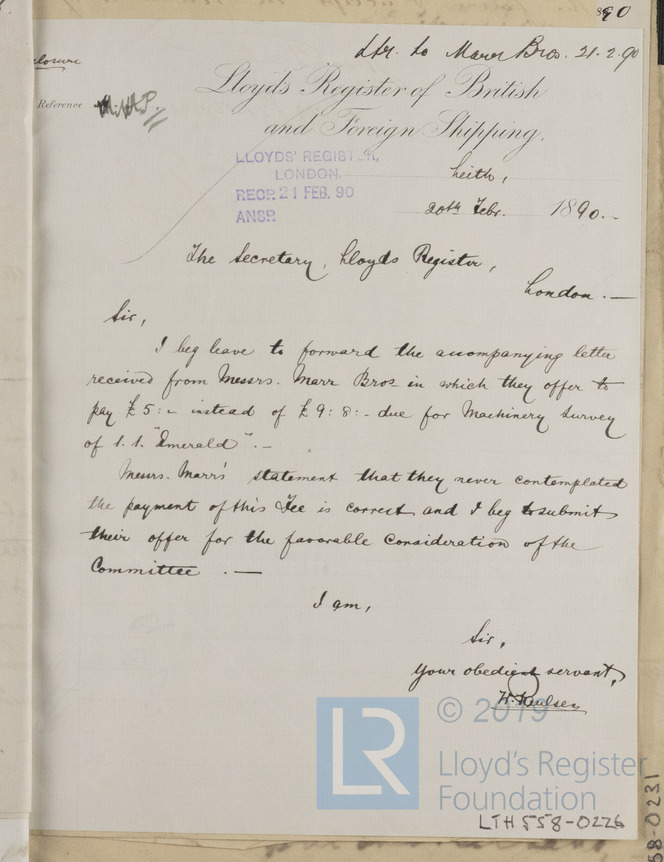 890
Ltr. to Marr Bros. 21.2.90
closure
Lloyds Register of British
Reference
and Foreign Shipping.
LLOYDS' REGISTER,
LONDON.
RECD. 21 FEB. 90
ANSD.
Leith,
20th Febr. 1890.-
The Secretary, Lloyds Register,
London.-
Sir,
I beg leave to forward the accompanying letter
received from Messrs. Marr Bros. in which they offer to
pay £5:- instead of £9:8:- due for Machinery Survey
of s.s. "Emerald".-
Messrs. Marrs' statement that they never contemplated
the payment of this Fee is correct and I beg to submit
their offer for the favorable consideration of the
Committee.-
I am,
Sir,
Your obedient servant,
W. Paulsen
© 2019
LR
Lloyd's Register
Foundation
LTH558-0226
58-0231